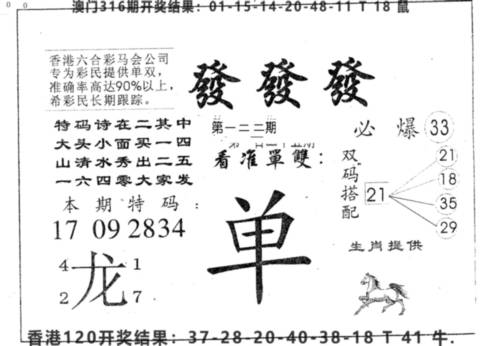 澳门316期开奖结果：01-15-14-20-48-11 T 18 鼠
香港六合彩马会公司
专为彩民提供单双，
准确率高达90%以上，
希彩民长期跟踪。
發 發 發
特码诗在二其中
大头小面买一四
山清水秀出二五
一六四零大家发
第一二二期
看准單雙：
必爆 33
双码搭配
21
21
18
35
29
本期特码：
17 09 28 34
单
4 1
龙
2 7
生肖提供
香港120开奖结果：37-28-20-40-38-18 T 41 牛.